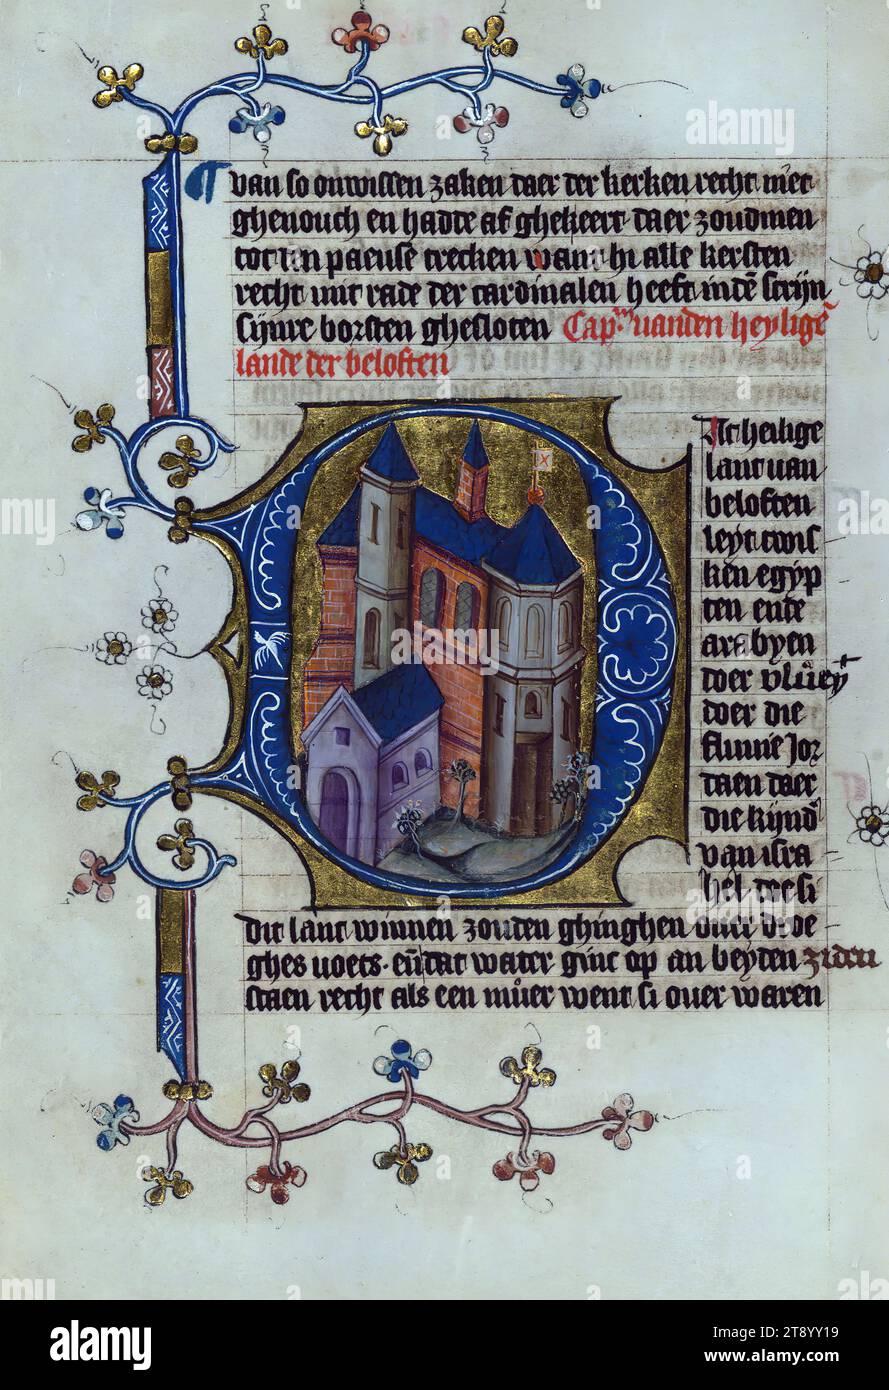 van so onwissen zaken daer der kerken recht niet
ghenouch en hadde af ghekeert daer zoudmen
tot den paeuse trecken want hi alle kersten
recht mit rade der cardinalen heeft in dē scrijn
sijnre borsten ghesloten Cap.m vanden heylighē
lande der beloften
At heilige
lant van
beloften
leyt twis
ken egyp
ten ende
arabyen
doer vlüey
doer die
flume Jor
daen daer
die kynd
van isra
hel doe si
dit lant winnen zouden ghinghen ouer droe
ghes voets. eñ dat water ginc op an beyden ziden
staen recht als een müer went si ouer waren
alamy
alamy
Image ID: 2T8YY19
www.alamy.com